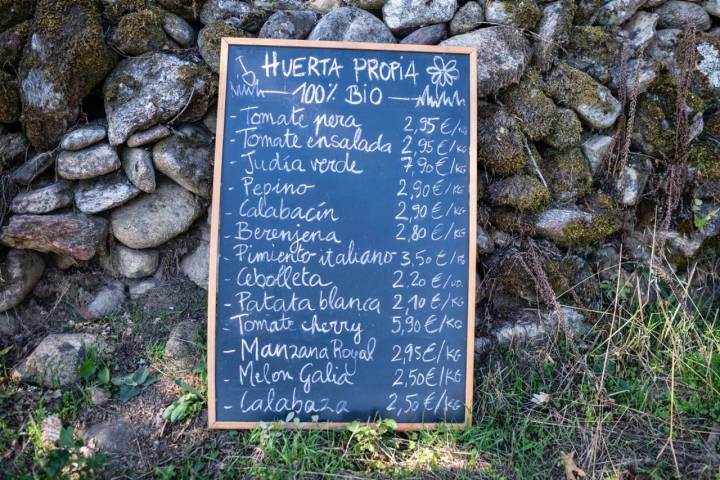 HUERTA PROPIA
100% BIO
- Tomate pera 2,95 €/KG
- Tomate ensalada 2,95 €/KG
- Judía verde 7,90 €/KG
- Pepino 2,90 €/KG
- Calabacín 2,90 €/KG
- Berenjena 2,80 €/KG
- Pimiento italiano 3,50 €/KG
- Cebolleta 2,20 €/UD.
- Patata blanca 2,10 €/KG
- Tomate cherry 5,90 €/KG
- Manzana Royal 2,95 €/KG
- Melon Galia 2,50 €/KG
- Calabaza 2,50 €/KG